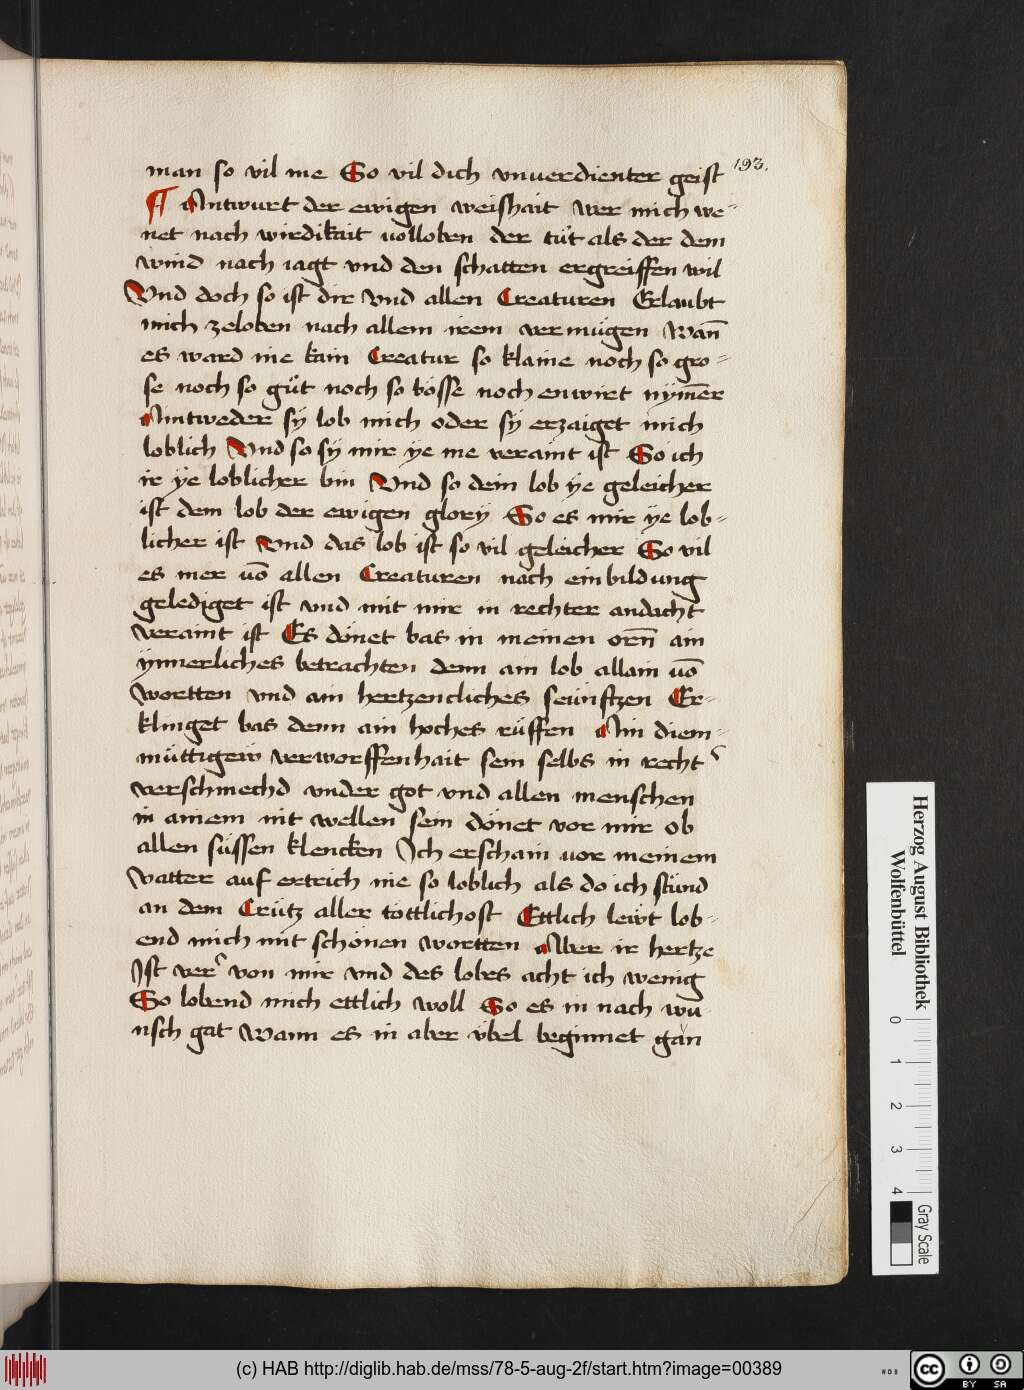 193.
man so vil me So vil dich vnuerdienter geist
Antwurt der ewigen weishait Wer mich we-
net nach wirdikait volloben der tůt als der dem
wind nach iagt vnd den schatten ergreiffen wil
Vnd doch so ist dir vnd allen Creaturen Erlaubt
mich zeloben nach allem irem vermügen Wan̄
es ward nie kain Creatur so klaine noch so gro-
se noch so gůt noch so bösse noch enwirt nym̄er
Aintweder sÿ lob mich oder sÿ erzaiget mich
loblich Vnd so sÿ mir ye me veraint ist So ich
ir ÿe loblicher bin Vnd so dein lob ÿe geleicher
ist dem lob der ewigen glory So es mir ÿe lob-
licher ist Vnd das lob ist so vil geleicher So vil
es mer vō allen Creaturen nach einbildung
gelediget ist vnd mit mir in rechter andacht
veraint ist Es dönet bas in meinen orn̄ ain
ÿnnerliches betrachten denn ain lob allain vō
wortten vnd ain hertzencliches seünftzen Er-
klinget bas denn ain hoches rüffen Ain diem-
müttigew verworffenhait sein selbs in recht᾿
verschmechd vnder got vnd allen menschen
in ainem nit wellen sein dönet vor mir ob
allen süssen klencken Ich erschain vor meinem
vatter auf ertrich nie so loblich als do ich stůnd
an dem Crütz aller tottlichost Ettlich lewt lob-
end mich mit schönen wortten Aber ir hertze
Ist ver᾿ von mir vnd des lobes acht ich wenig
So lobend mich ettlich woll So es in nach wu-
nsch gat Wann es in aber vbel beginnet gan
Herzog August Bibliothek
Wolfenbüttel
0 1 2 3 4
Gray Scale
(c) HAB http://diglib.hab.de/mss/78-5-aug-2f/start.htm?image=00389
cc BY SA